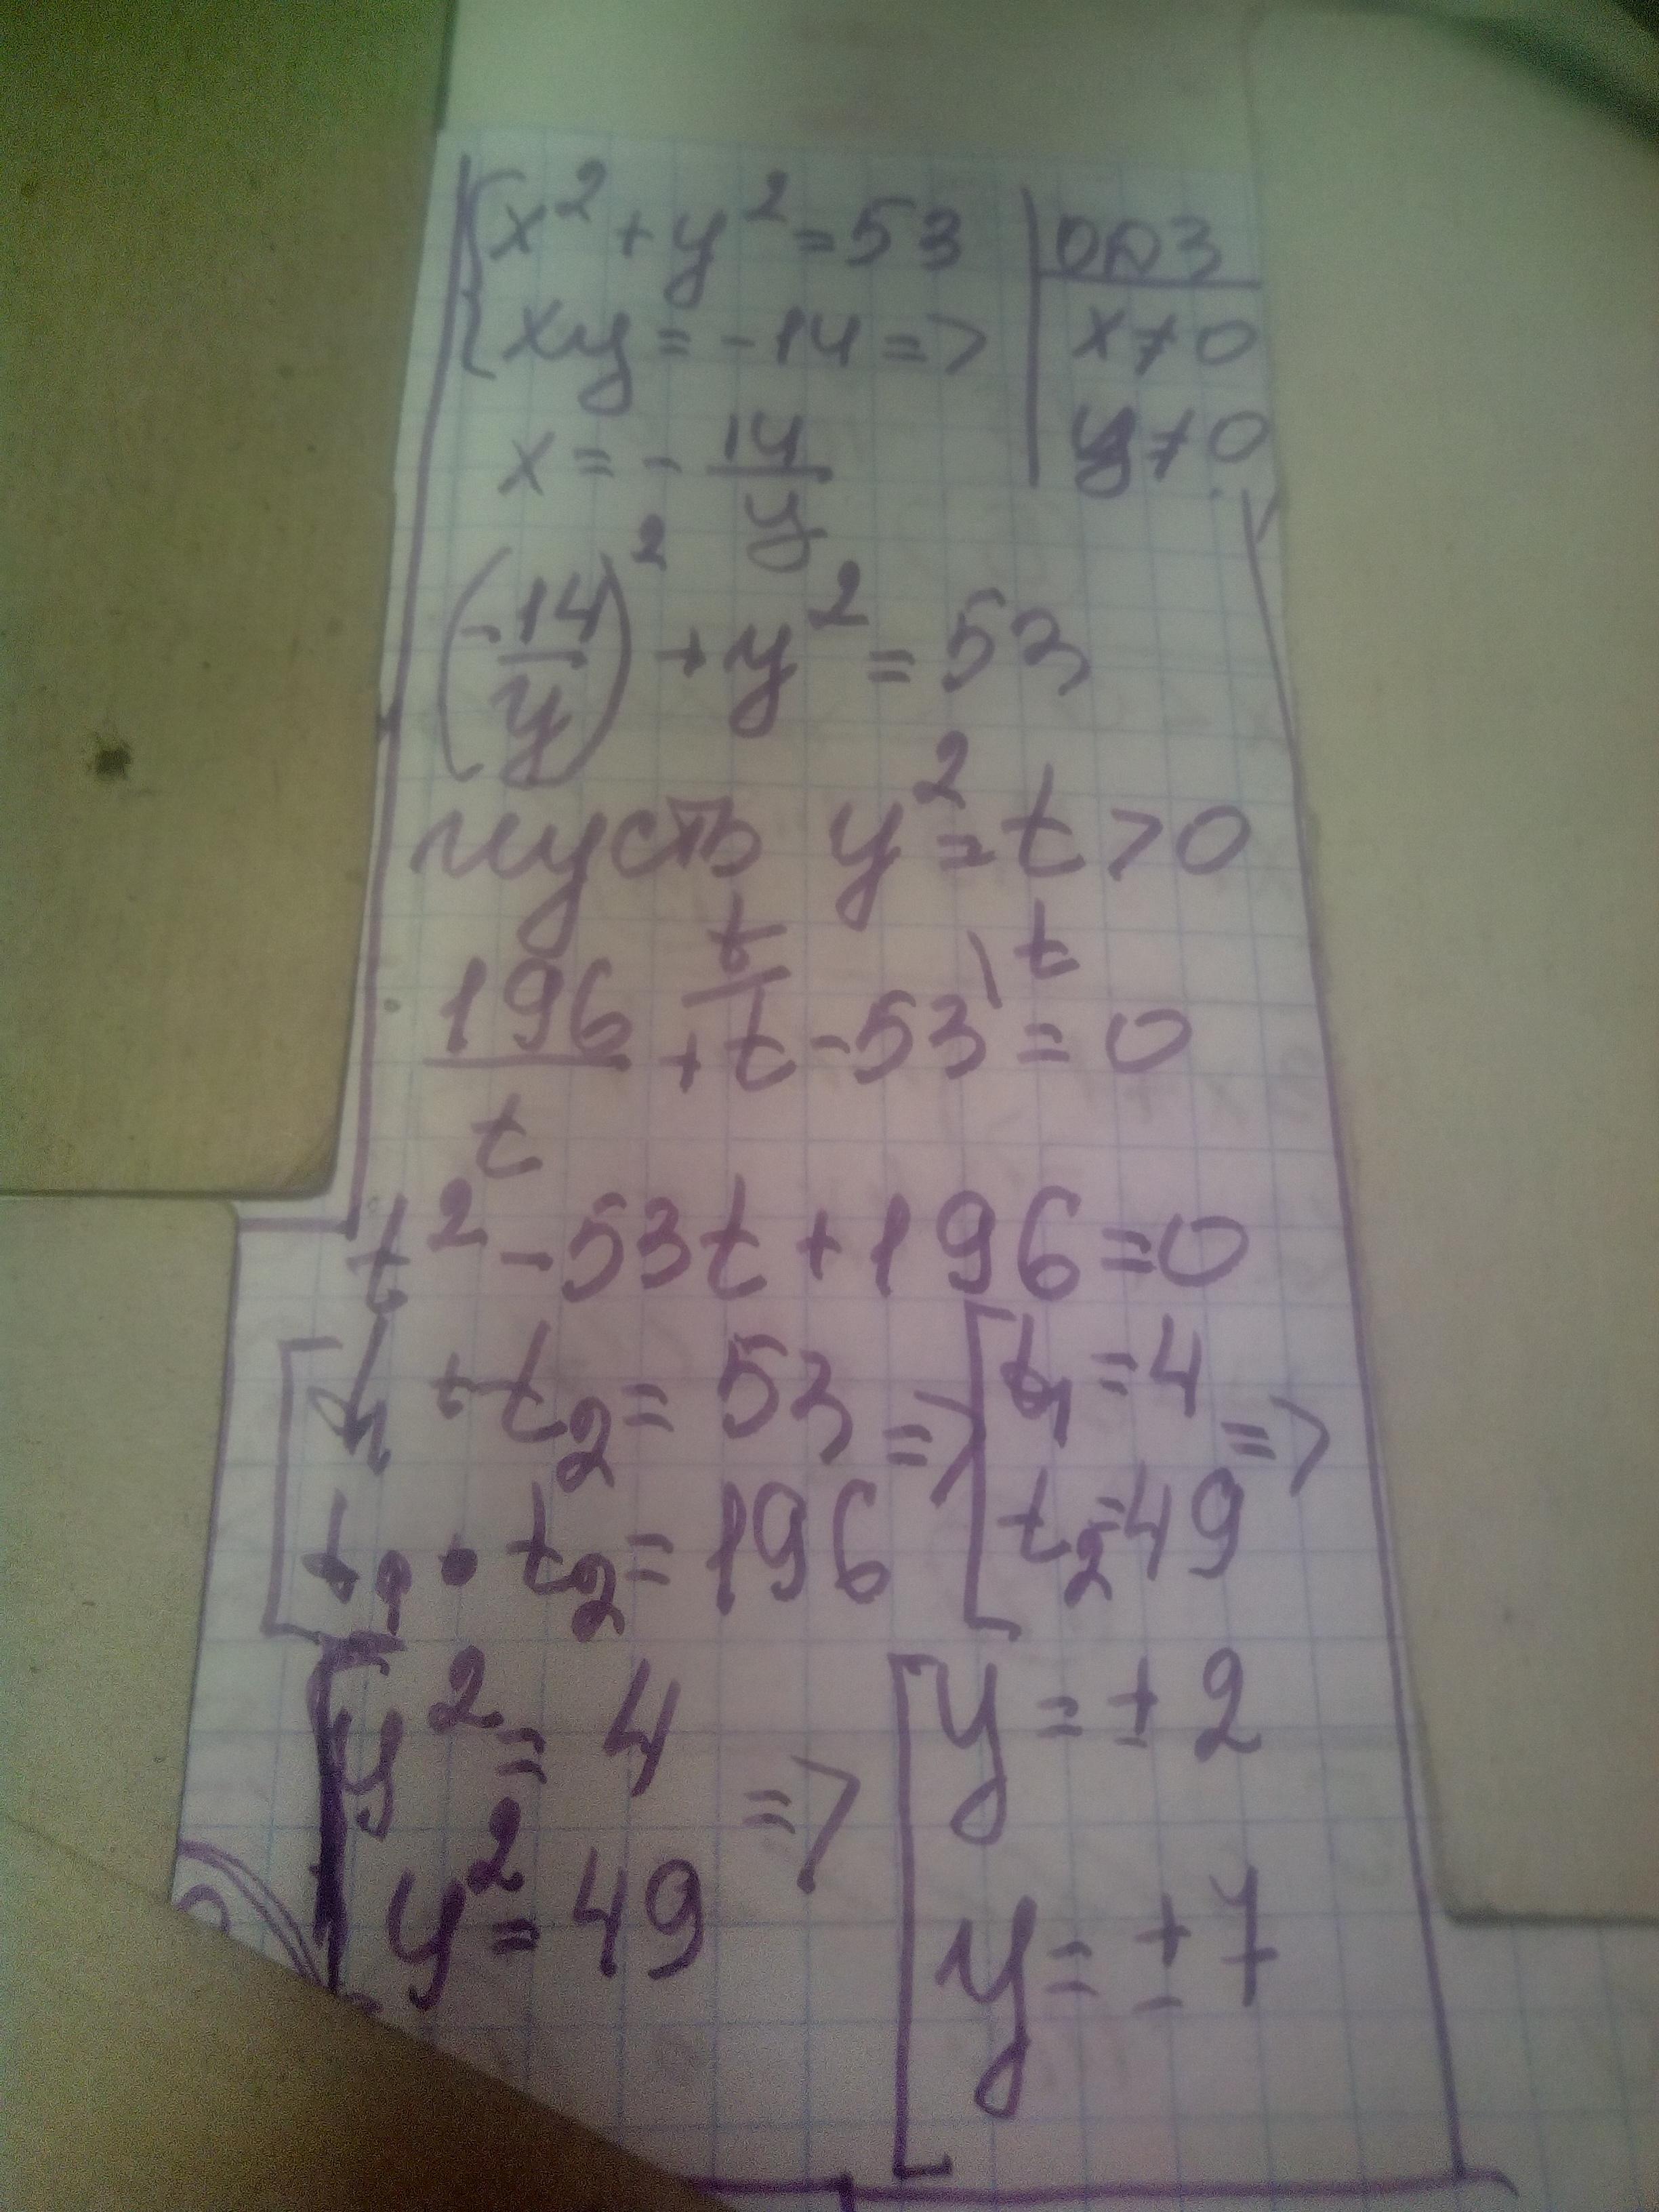 x² + y² = 53
xy = -14 =>
ОДЗ
x ≠ 0
y ≠ 0
x = - 14/y
(-14/y)² + y² = 53
пусть y² = t > 0
196/t + t/t - 53\t = 0
t² - 53t + 196 = 0
t₁ + t₂ = 53 => t₁ = 4 =>
t₁ • t₂ = 196 t₂ = 49
y² = 4 => y = ± 2
y² = 49 y = ± 7